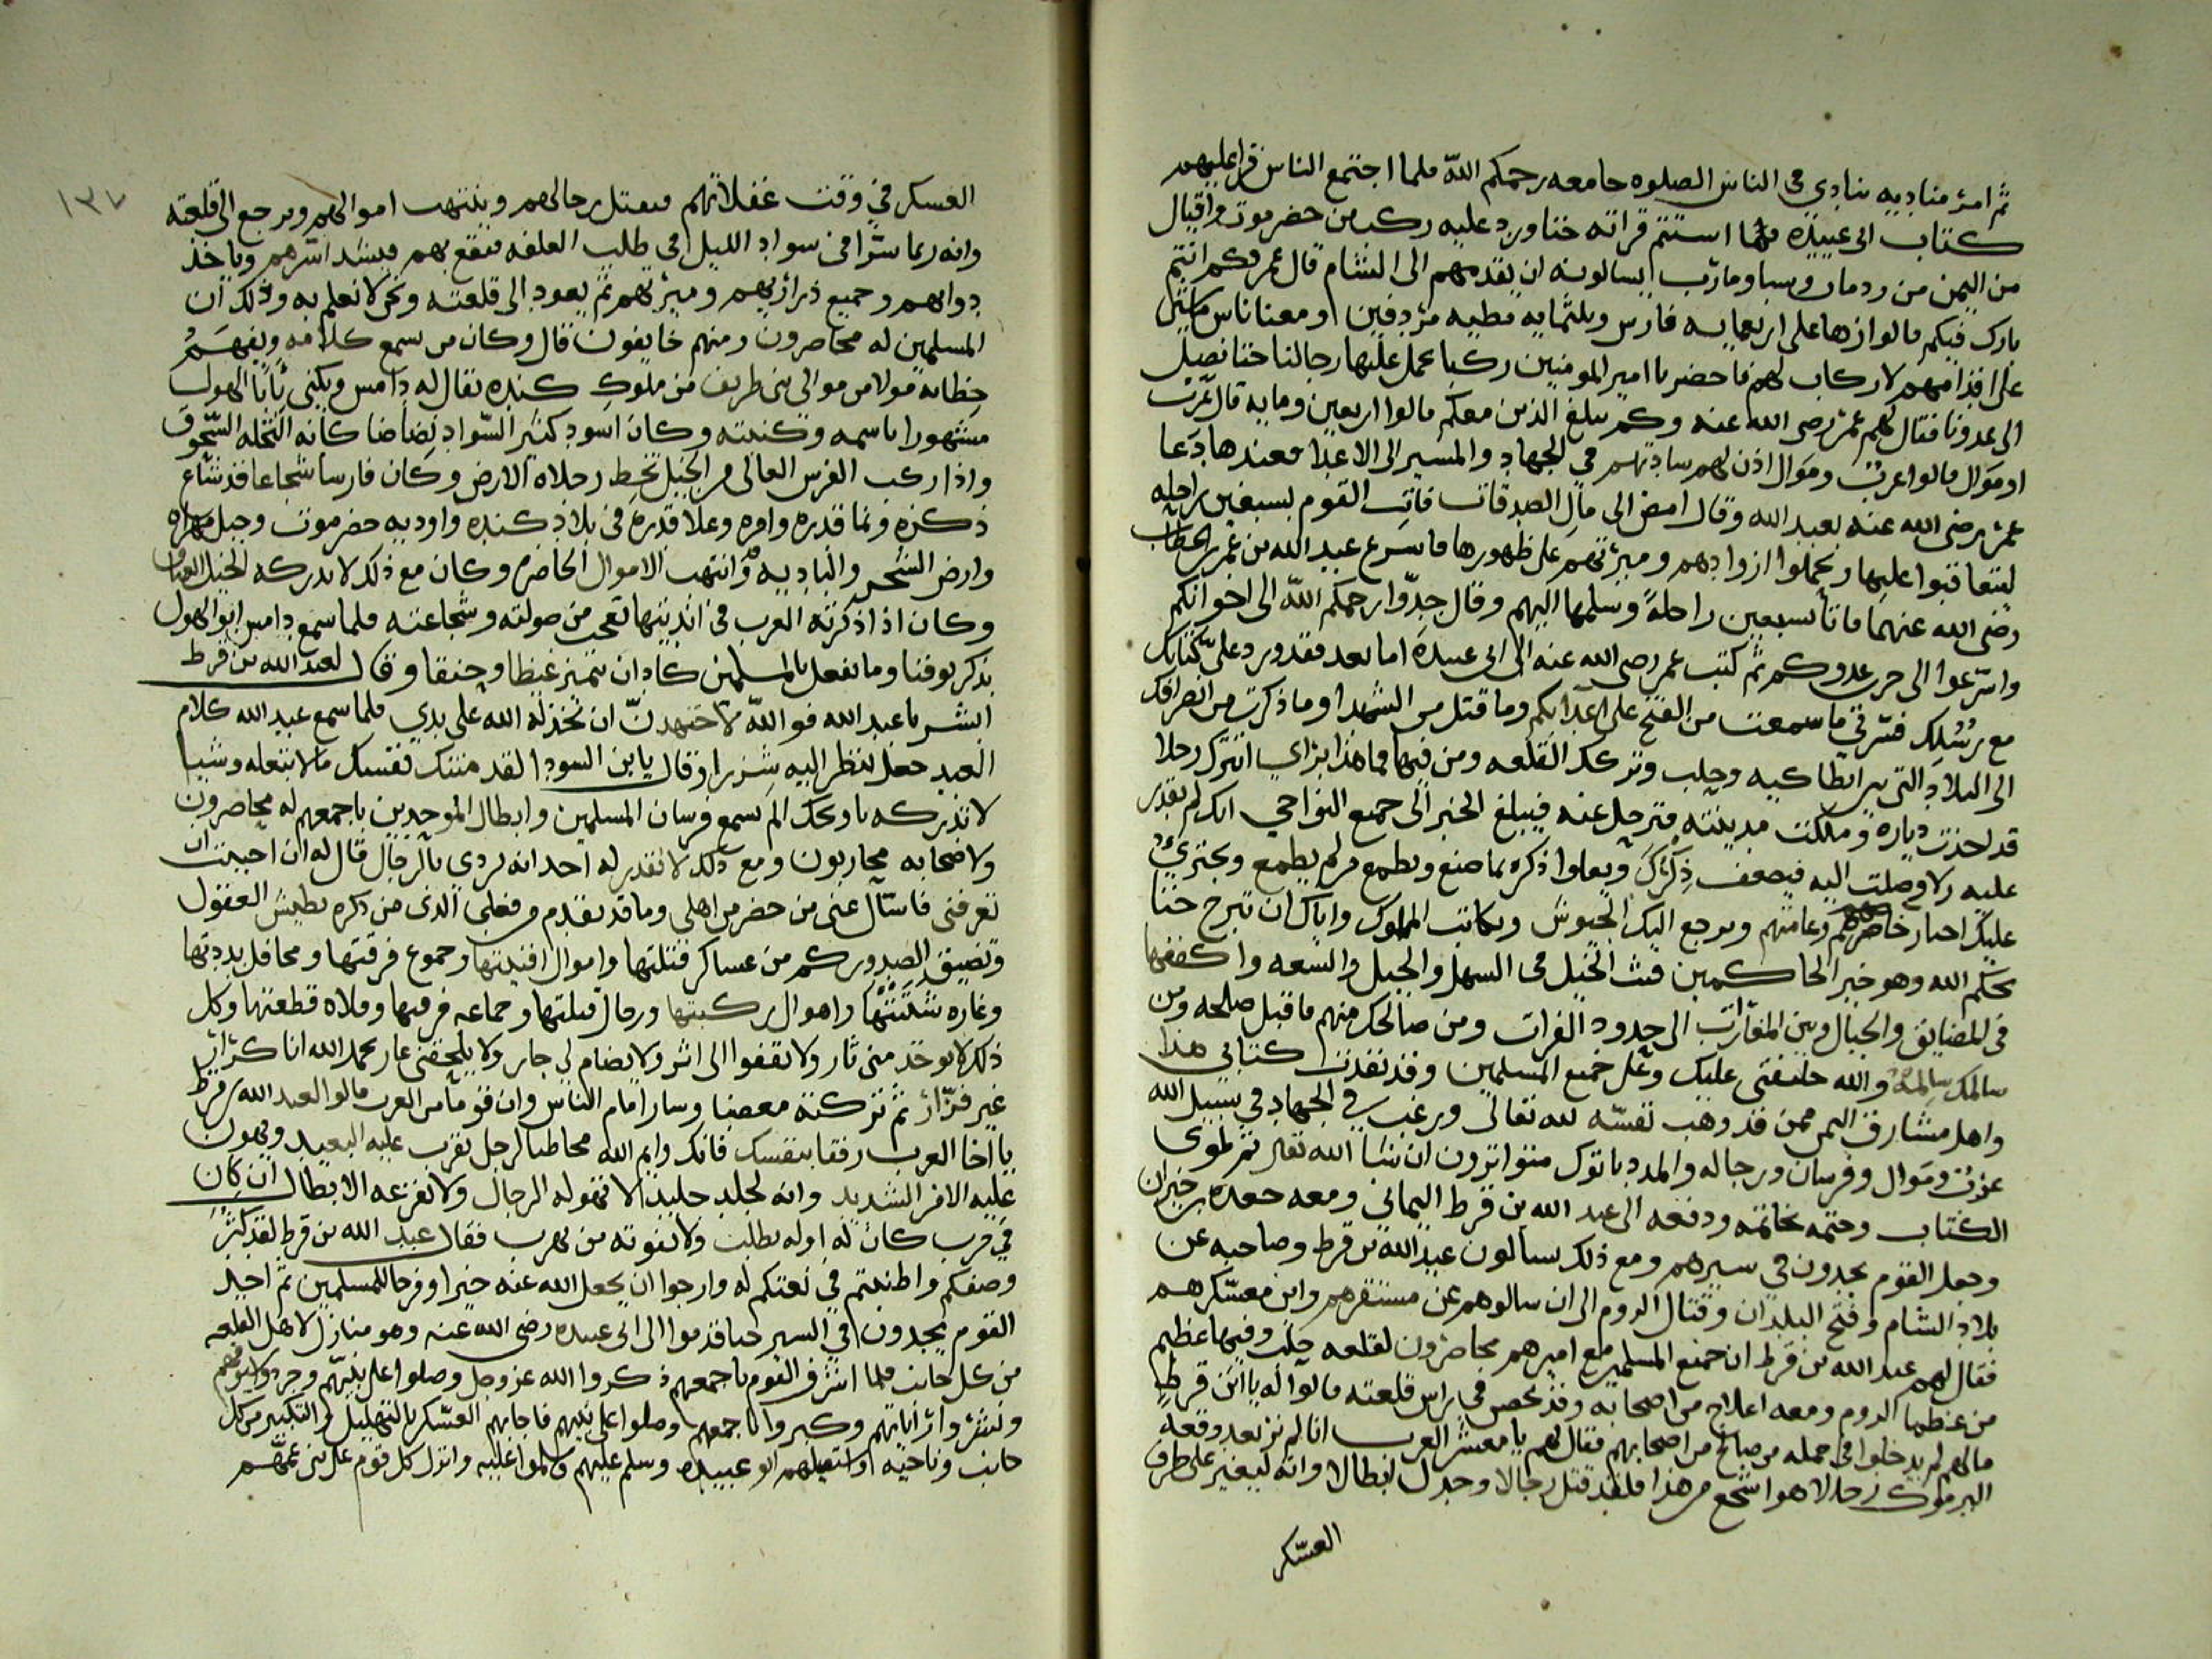 ثم امر مناديه ينادي في الناس الصلوه جامعه رحمكم الله فلما اجتمع الناس قرا عليهم
كتاب ابى عبيده فما استتم قراته حتا ورد عليه ركب من حضرموت واقيال
من اليمن من ردمان وسبا ومارب يسالونه ان يقدمهم الى الشام قال عمر وكم انتم
بارك فيكم قالوا زها على اربعمايه فارس وثلثمايه مطيه مردفين ومعنا ناس
على اقدامهم لا ركاب لهم فاحضر يا امير المومنين ركبا نحمل عليها رجالنا حتا نصل
الى عدونا فقال لهم عمر رضى الله عنه وكم يبلغ الذين معكم قالوا اربعين ومايه قال عرب
او موال قالوا عرب وموال اذن لهم ساداتهم في الجهاد والمسير الى الاعدا فعندها دعا
عمر رضى الله عنه بعبد الله وقال امض الى مال الصدقات فات القوم بسبعين راحله
ليتعاقبوا عليها ويحملوا ازوادهم وميرتهم على ظهورها فاسرع عبد الله بن عمر بن الخطاب
رضى الله عنهما فاتا بسبعين راحلة وسلمها اليهم وقال جدوا رحمكم الله الى اخوانكم
واسرعوا الى حرب عدوكم ثم كتب عمر رضى الله عنه الى ابى عبيده اما بعد فقد ورد على كتابك
مع رسلك فسرني ما سمعت من الفتح على اعدايكم وما قتل من الشهدا وما ذكرت من انصرافك
الى البلاد التى بين انطاكيه وحلب وتركك القلعه ومن فيها فما هذا براي اتترك رجلا
قد اخذت دياره وملكت مدينته فترحل عنه فيبلغ الخبر الى جميع النواحي انك لم تقدر
عليه ولا وصلت اليه فيضعف ذكرك ويعلوا ذكره بما صنع ويطمع من لم يطمع ويجتري
عليك اخبار خاصتهم وعامتهم وترجع اليك الجيوش وتكاتب الملوك واياك ان تبرح حتا
يحكم الله وهو خير الحاكمين فبث الخيل في السهل والجبل والسعه واكنفها
في المضايق والجبال وبين المغارات الى حدود الفرات ومن صالحك منهم فاقبل صلحه ومن
سالمك سالمه والله خليفتى عليك وعلى جميع المسلمين وقد نفذت كتابي هذا
واهل مشارف اليمن ممن قد وهب نفسه لله تعالى ورغب في الجهاد في سبيل الله
عرب وموال وفرسان ورجاله والمدد ياتوك متواترون ان شا الله تعالى ثم طوى
الكتاب وختمه بخاتمه ودفعه الى عبد الله بن قرط اليماني ومعه جعده بن جبران
وجعل القوم يجدون في سيرهم ومع ذلك يسالون عبد الله بن قرط وصاحبه عن
بلاد الشام وفتح البلدان وقتال الروم الى ان سالوهم عن مستقرهم واين معسكرهم
فقال لهم عبد الله بن قرط ان جميع المسلمين مع اميرهم محاصرون لقلعه حلب وفيها عظيم
من عظما الروم ومعه اعلاج من اصحابه وقد تحصن في راس قلعته قالوا له يا ابن قرط
مالهم لم يدخلوا في جمله من صالح من اصحابهم فقال لهم يا معشر العرب انا لم نر بعد وقعه
اليرموك رجالا هو اشجع من هذا فلقد قتل رجالا وجدل ابطالا وانه ليغير على طرف
العسكر
١٣٧
العسكر في وقت غفلاتهم فيقتل رجالهم وينتهب اموالهم ويرجع الى قلعته
وانه ربما سرا في سواد الليل في طلب العلافه فيقع بهم فيشد اسرهم وياخذ
دوابهم وجميع ذراريهم وميرتهم ثم يعود الى قلعته ونحن لا نعلم به وذلك ان
المسلمين له محاصرون ومنهم خايفون قال وكان من سمع كلامه وتفهم
خطابه مولا من موالي بنى طريف من ملوك كنده يقال له دامس ويكنى بابا الهول
مشهورا باسمه وكنيته وكان اسود كثير السواد بضاضا كانه النخله السحوق
واذا ركب الفرس العالى من الخيل تخط رجلاه الارض وكان فارسا شجاعا قد شاع
ذكره ونما قدره وامره وعلا قدره في بلاد كنده واوديه حضرموت وجبل مهراه
وارض الشحر والباديه وانتهب الاموال الحاضره وكان مع ذلك لا تدركه الخيل العتاق
وكان اذا ذكرته العرب في انديتها تعجب من صولته وشجاعته فلما سمع دامس ابو الهول
بذكر يوقنا وما يفعل بالمسلمين كاد ان يتميز غيظا وحنقا وقال لعبد الله بن قرط
ابشر يا عبد الله فوالله لاجتهدن ان يخذله الله على يدي فلما سمع عبد الله كلام
العبد جعل ينظر اليه شزرا وقال يا بن السودا لقد منتك نفسك مالا تبلغه وشيا
لا تدركه يا ويحك الم تسمع فرسان المسلمين وابطال الموحدين باجمعهم له محاصرون
ولاصحابه محاربون ومع ذلك لا تقدر له احد انه لردى بالرجال قال له ان احببت ان
تعرفنى فاسال عنى من حضر من اهلى وما قد تقدم من فعلى الذى من ذكره تطيش العقول
وتضيق الصدور كم من عساكر فتلتها واموال افنيتها وجموع فرقتها ومحافل بددتها
وغاره شتتها واهوال ركبتها ورجال قتلتها وجماعه فرقتها وفلاه قطعتها وكل
ذلك لا يوخذ منى ثار ولا يقفوا الى اثر ولا يضام لي جار ولا يلحقنى عار بحمد الله انا كرار
غير فرار ثم تركنه مغضبا وسار امام الناس وان قوما من العرب قالوا لعبد الله بن قرط
يا اخا العرب رفقا بنفسك فانك وايم الله مخاطبا لرجل يقرب عليه البعيد ويهون
عليه الامر الشديد وانه لجلد جليد لا تهوله الرجال ولا تفزعه الابطال ان كان
في حرب كان له اوله يطلب ولا يفوته من يهرب فقال عبد الله بن قرط لقد كثر
وصفكم واطنبتم في نعتكم له وارجوا ان يجعل الله عنده خيرا وفرحا للمسلمين ثم اخذ
القوم يجدون في السير حتا قدموا الى ابى عبيده رضى الله عنه وهو منازل لاهل القلعه
من كل جانب فلما اشرف القوم باجمعهم ذكروا الله عز وجل وصلوا على نبيهم وجردوا سيوفهم
ونشروا راياتهم وكبروا باجمعهم وصلوا على نبيهم فاجابهم العسكر بالتهليل والتكبير من كل
جانب وناحيه واستقبلهم ابو عبيده وسلم عليهم وسلموا عليه وانزل كل قوم على بنى عمهم